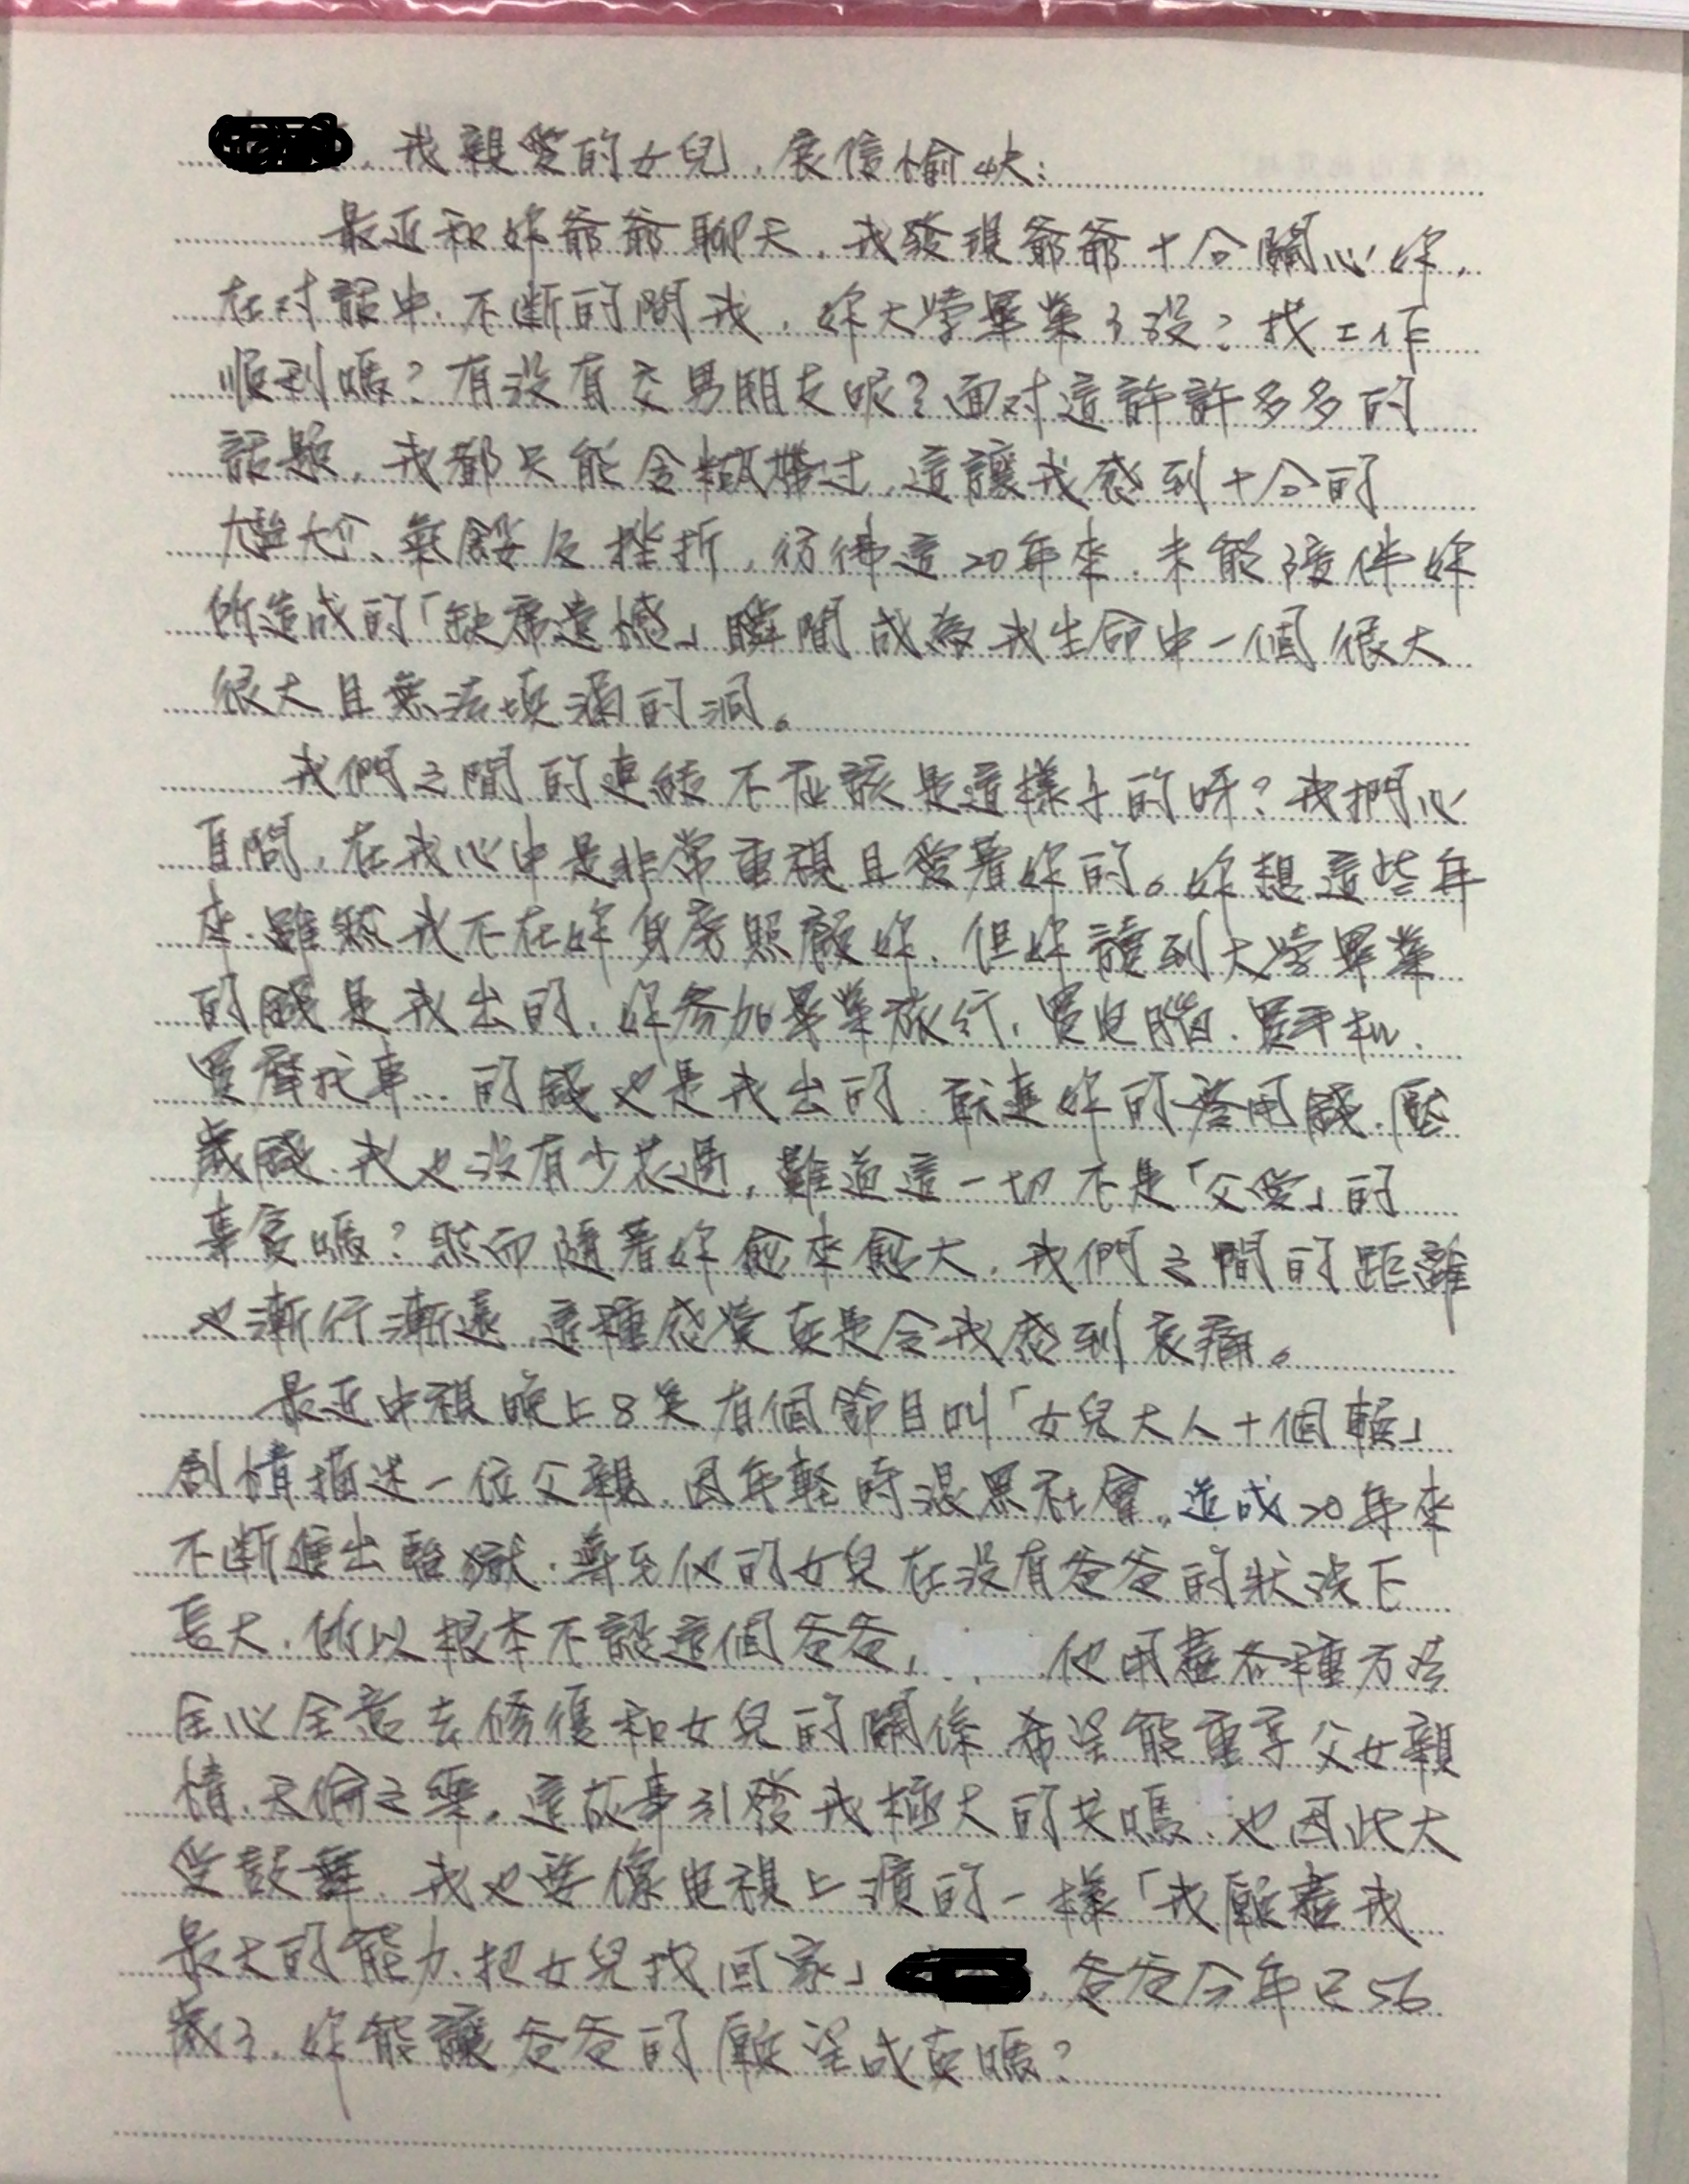 ，我親愛的女兒，展信愉快：
最近和妳爺爺聊天，我發現爺爺十分關心妳，
在对話中，不斷的問我，妳大學畢業了沒？找工作
順利嗎？有沒有交男朋友呢？面对這許許多多的
話題，我都只能含糊帶过，這讓我感到十分的
尷尬、氣餒及挫折，彷彿這20年來，未能陪伴妳
所造成的「缺席遺憾」瞬間成為我生命中一個很大
很大且無法填滿的洞。
我們之間的連結不應該是這樣子的呀？我捫心
自問，在我心中是非常重視且愛著妳的。妳想這些年
來，雖然我不在妳身旁照顧妳，但妳讀到大學畢業
的錢是我出的，妳參加畢業旅行，買电腦，買手机，
買摩托車…的錢也是我出的，就連妳的零用錢，壓
歲錢，我也沒有少花過，難道這一切不是「父愛」的
事實嗎？然而隨著妳愈來愈大，我們之間的距離
也漸行漸遠，這種感覺真是令我感到哀痛。
最近中視晚上8点有個節目叫「女兒大人十個賴」
劇情描述一位父親，因年輕時混黑社會，造成20年來
不斷進出監獄，導至他的女兒在沒有爸爸的狀況下
長大，所以根本不認這個爸爸，他用盡各種方法
全心全意去修復和女兒的關係，希望能重享父女親
情，天倫之樂，這故事引發我極大的共鳴，也因此大
受鼓舞，我也要像电視上演的一樣「我願盡我
最大的能力，把女兒找回家」，爸爸今年已56
歲了，妳能讓爸爸的願望成真嗎？